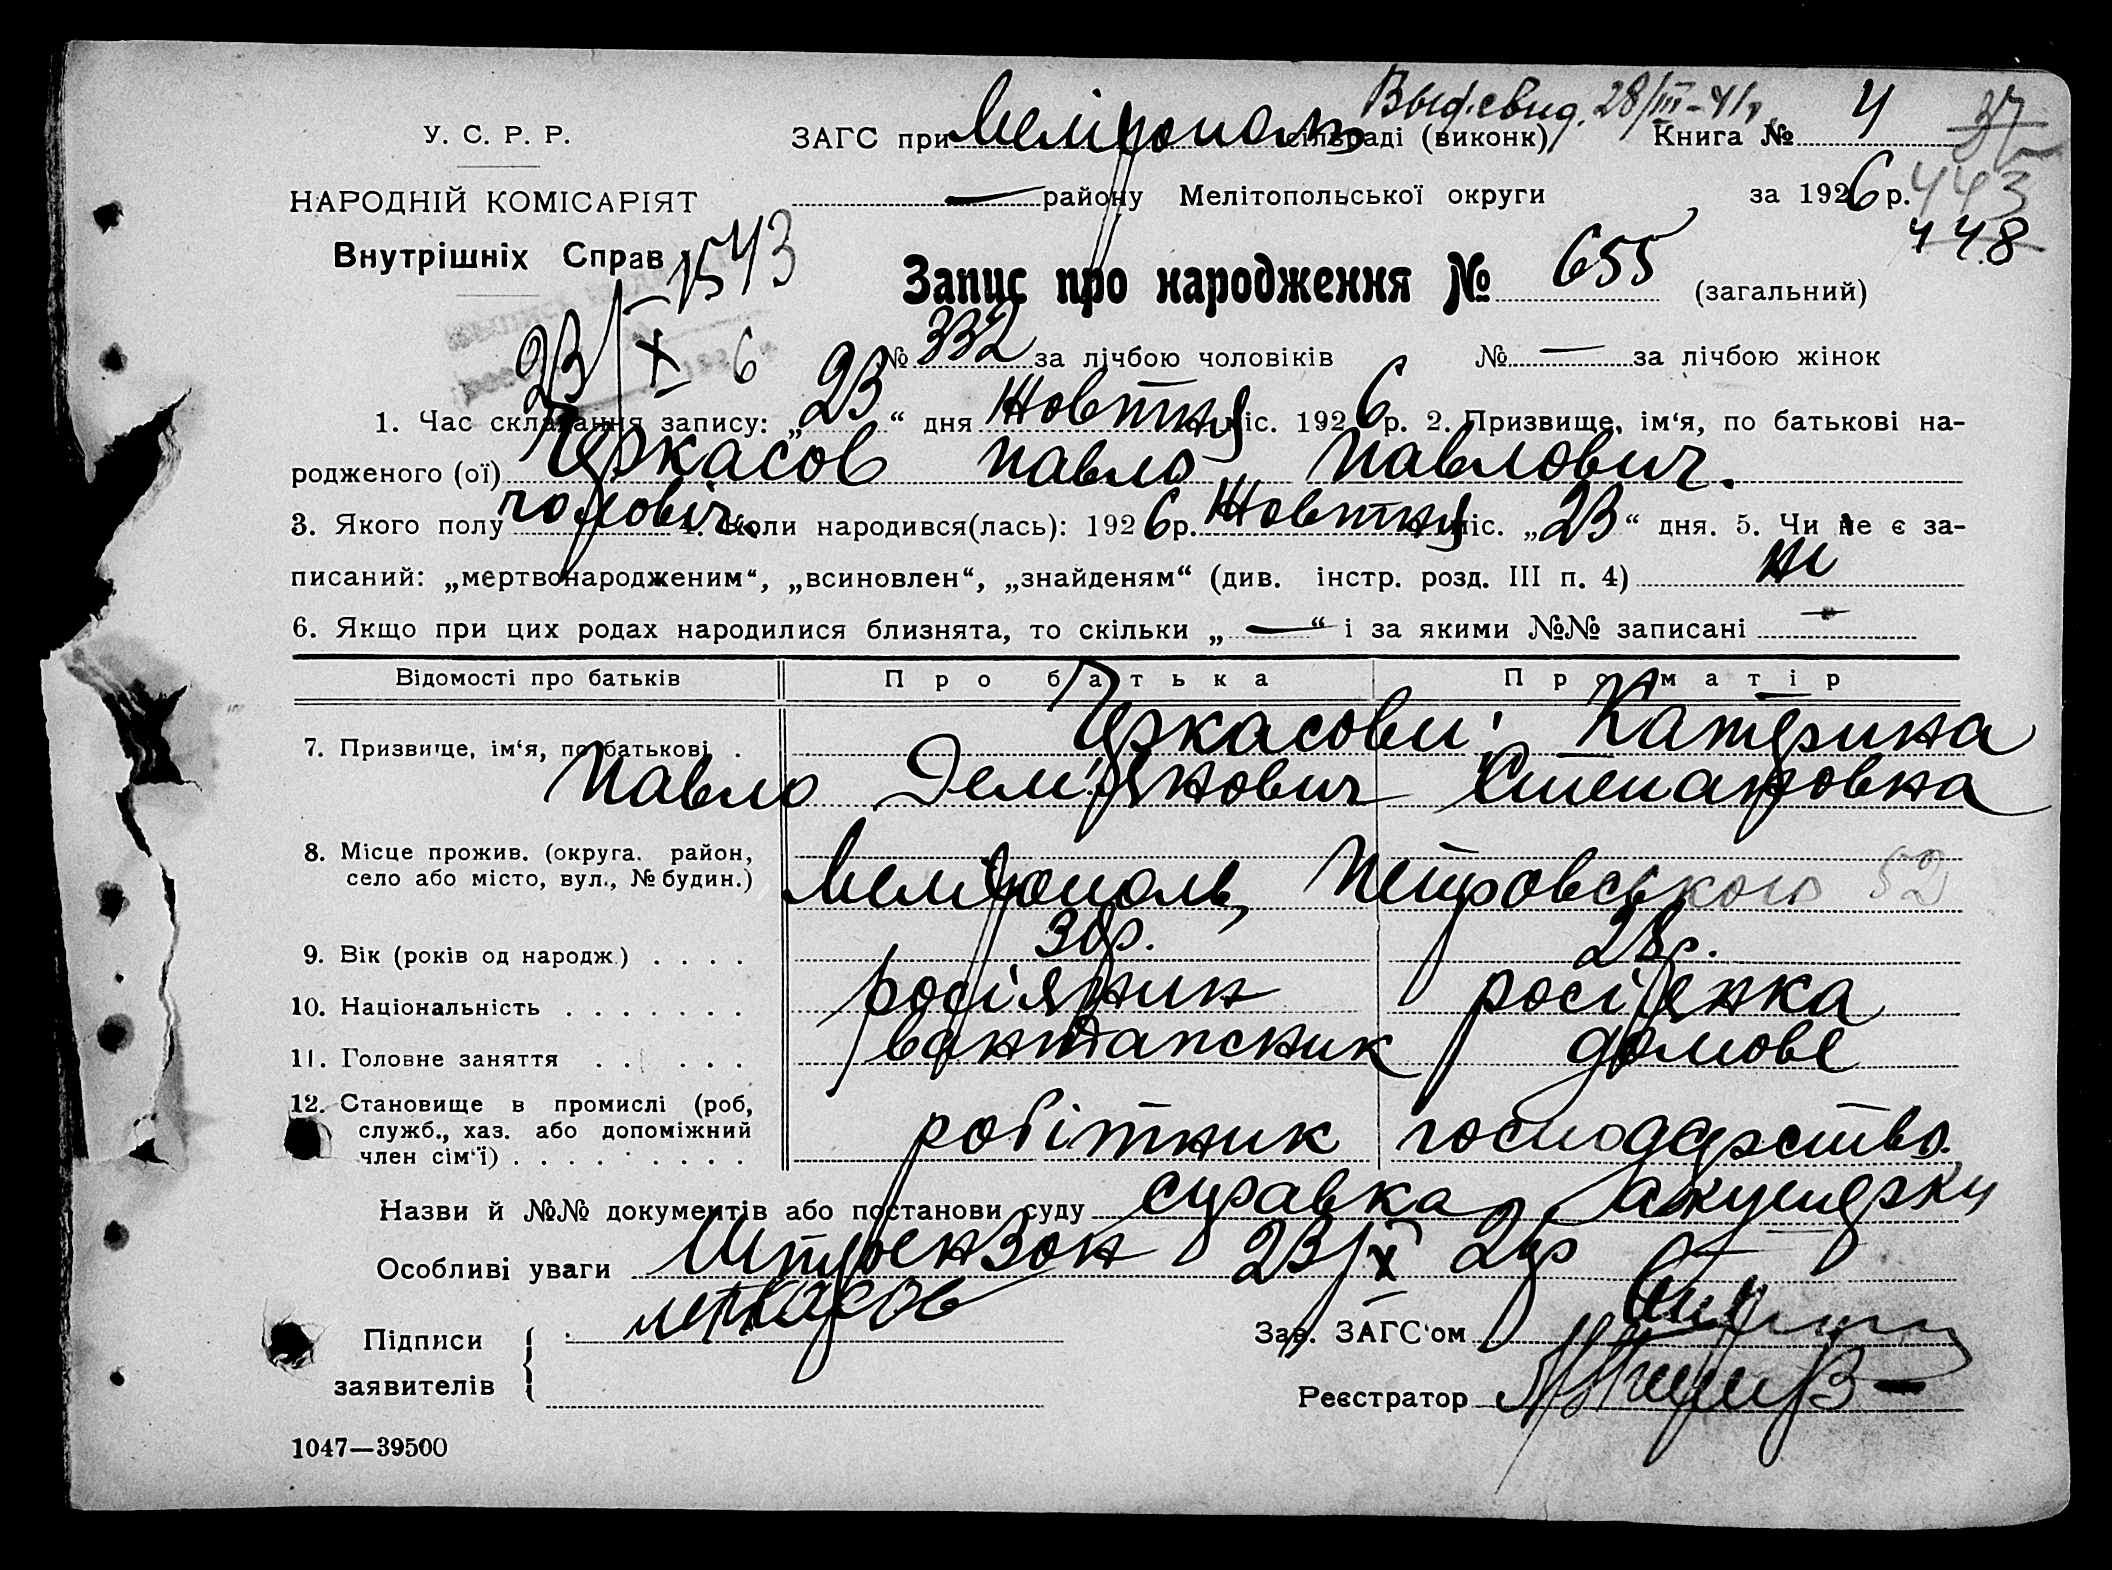 Выд. свид. 28/III-41 г.
У. С. Р. Р.
ЗАГС при Мелітополь сільраді (виконк) Книга № 4
37
НАРОДНІЙ КОМІСАРІЯТ
— району Мелітопольської округи за 1926 р.
443
448
Внутрішніх Справ
1543
Запис про народження № 655 (загальний)
23/X 6
№ 332 за лічбою чоловіків № — за лічбою жінок
1. Час складання запису: „23“ дня Жовтня міс. 1926 р. 2. Призвище, ім‘я, по батькові на-
родженого (ої) Черкасов Павло Павлович.
3. Якого полу чоловіч. 4. Коли народився(лась): 1926 р. Жовтня міс. „23“ дня. 5. Чи не є за-
писаний: „мертвонародженим“, „всиновлен“, „знайденям“ (див. інстр. розд. III п. 4) ні
6. Якщо при цих родах народилися близнята, то скільки „—“ і за якими №№ записані —
Відомості про батьків Про батька Про матір
7. Призвище, ім‘я, по батькові . Черкасови: Катерина
Павло Дем'янович Степановна
8. Місце прожив. (округа. район,
село або місто, вул., № будин.) Мелітополь, Петровського 52
9. Вік (років од народж.) . . . . 30 р. 28 р.
10. Національність . . . . . . . росіянин росіянка
11. Головне заняття . . . . . . вантажник домове
12. Становище в промислі (роб,
служб., хаз. або допоміжний
член сім‘ї) . . . . . . . . . робітник господарство.
Назви й №№ документів або постанови суду справка акушерки
Особливі уваги 23/X 26 р
Підписи Черкасов Зав. ЗАГС‘ом
заявителів
Реєстратор
1047—39500